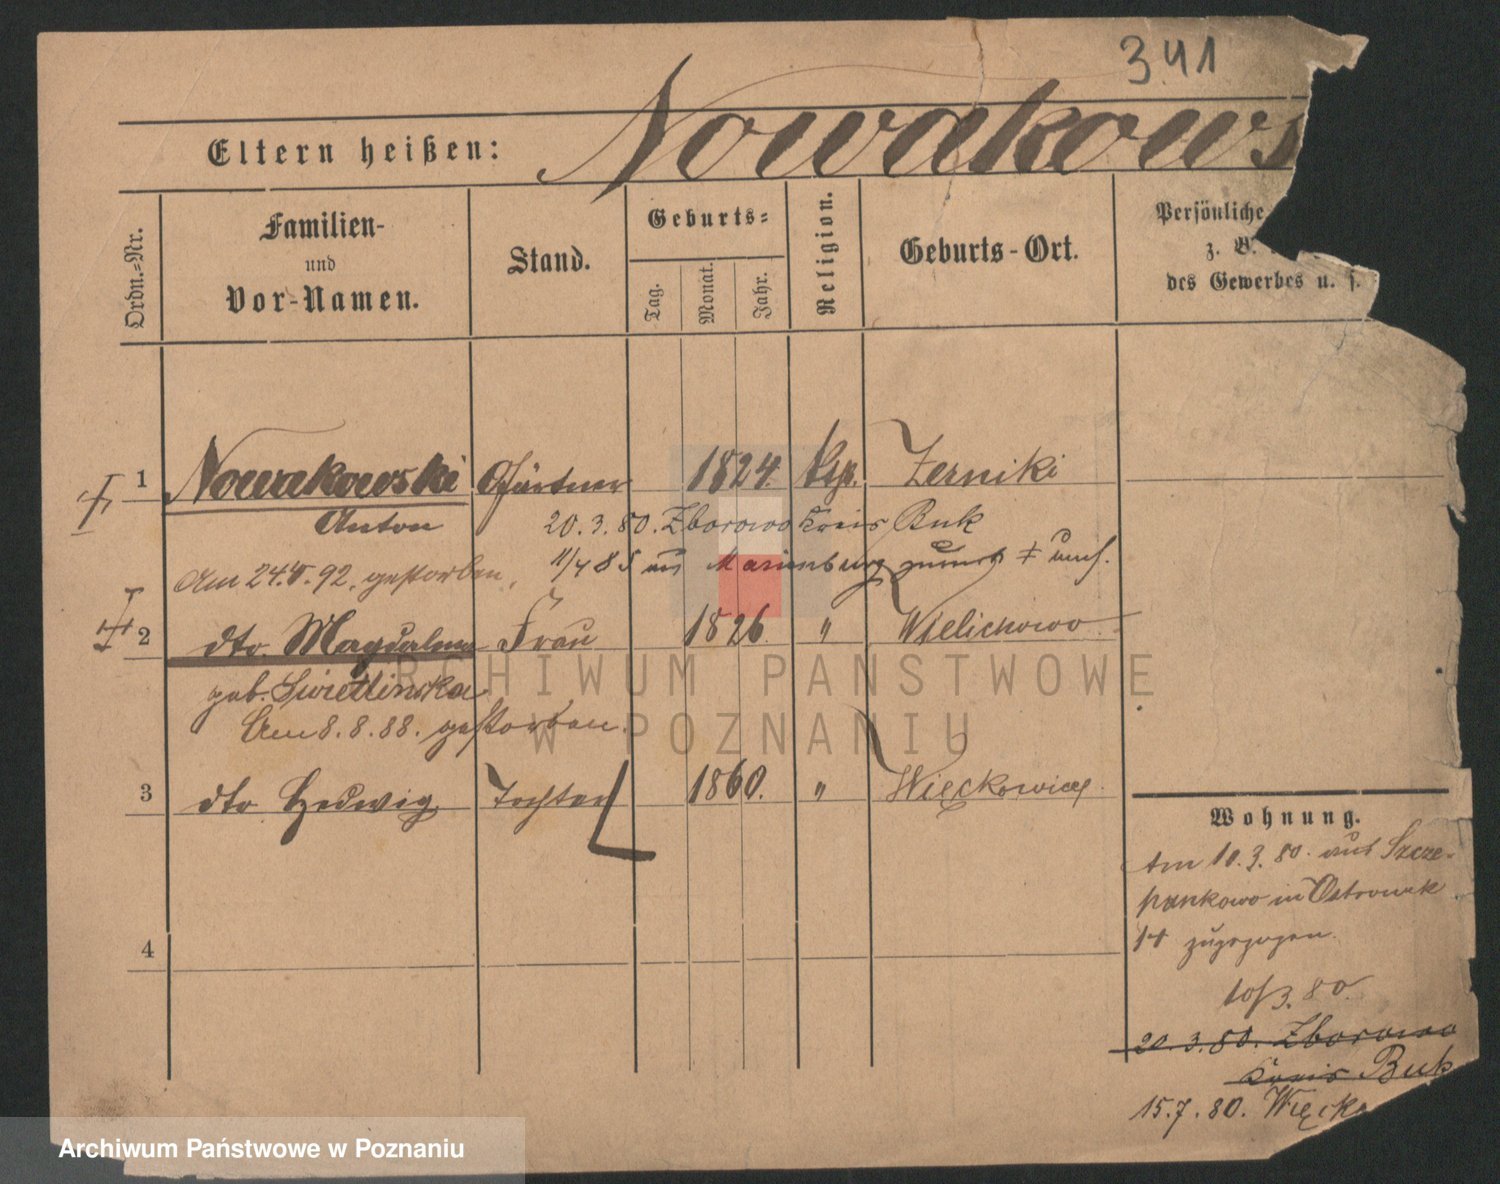 341
Eltern heißen: Nowakows
Ordn.-Nr.
Familien-
und
Vor-Namen.
Stand.
Geburts-
Tag.
Monat.
Jahr.
Religion.
Geburts-Ort.
Persönliche
z. B.
des Gewerbes u. s.
1 Nowakowski Gärtner 1824 Zerniki
Anton 20.3.80. Zborowo Kreis Buk
Am 24.5.92. gestorben, 11/4 85 Marienburg
2 dto Magdalena Frau 1826. " Wielichowo
geb. Swietlinska
Am 8.8.88. gestorben.
3 dto Hedwig Tochter 1860. " Więckowice
4
Wohnung.
Am 10.3.80. aus Szcze-
pankowo in Ostrowek
14 zugezogen.
10/3.80.
20.3.80. Zborowo
Kreis Buk
15.7.80. Więcko
ARCHIWUM PAŃSTWOWE
W POZNANIU
Archiwum Państwowe w Poznaniu